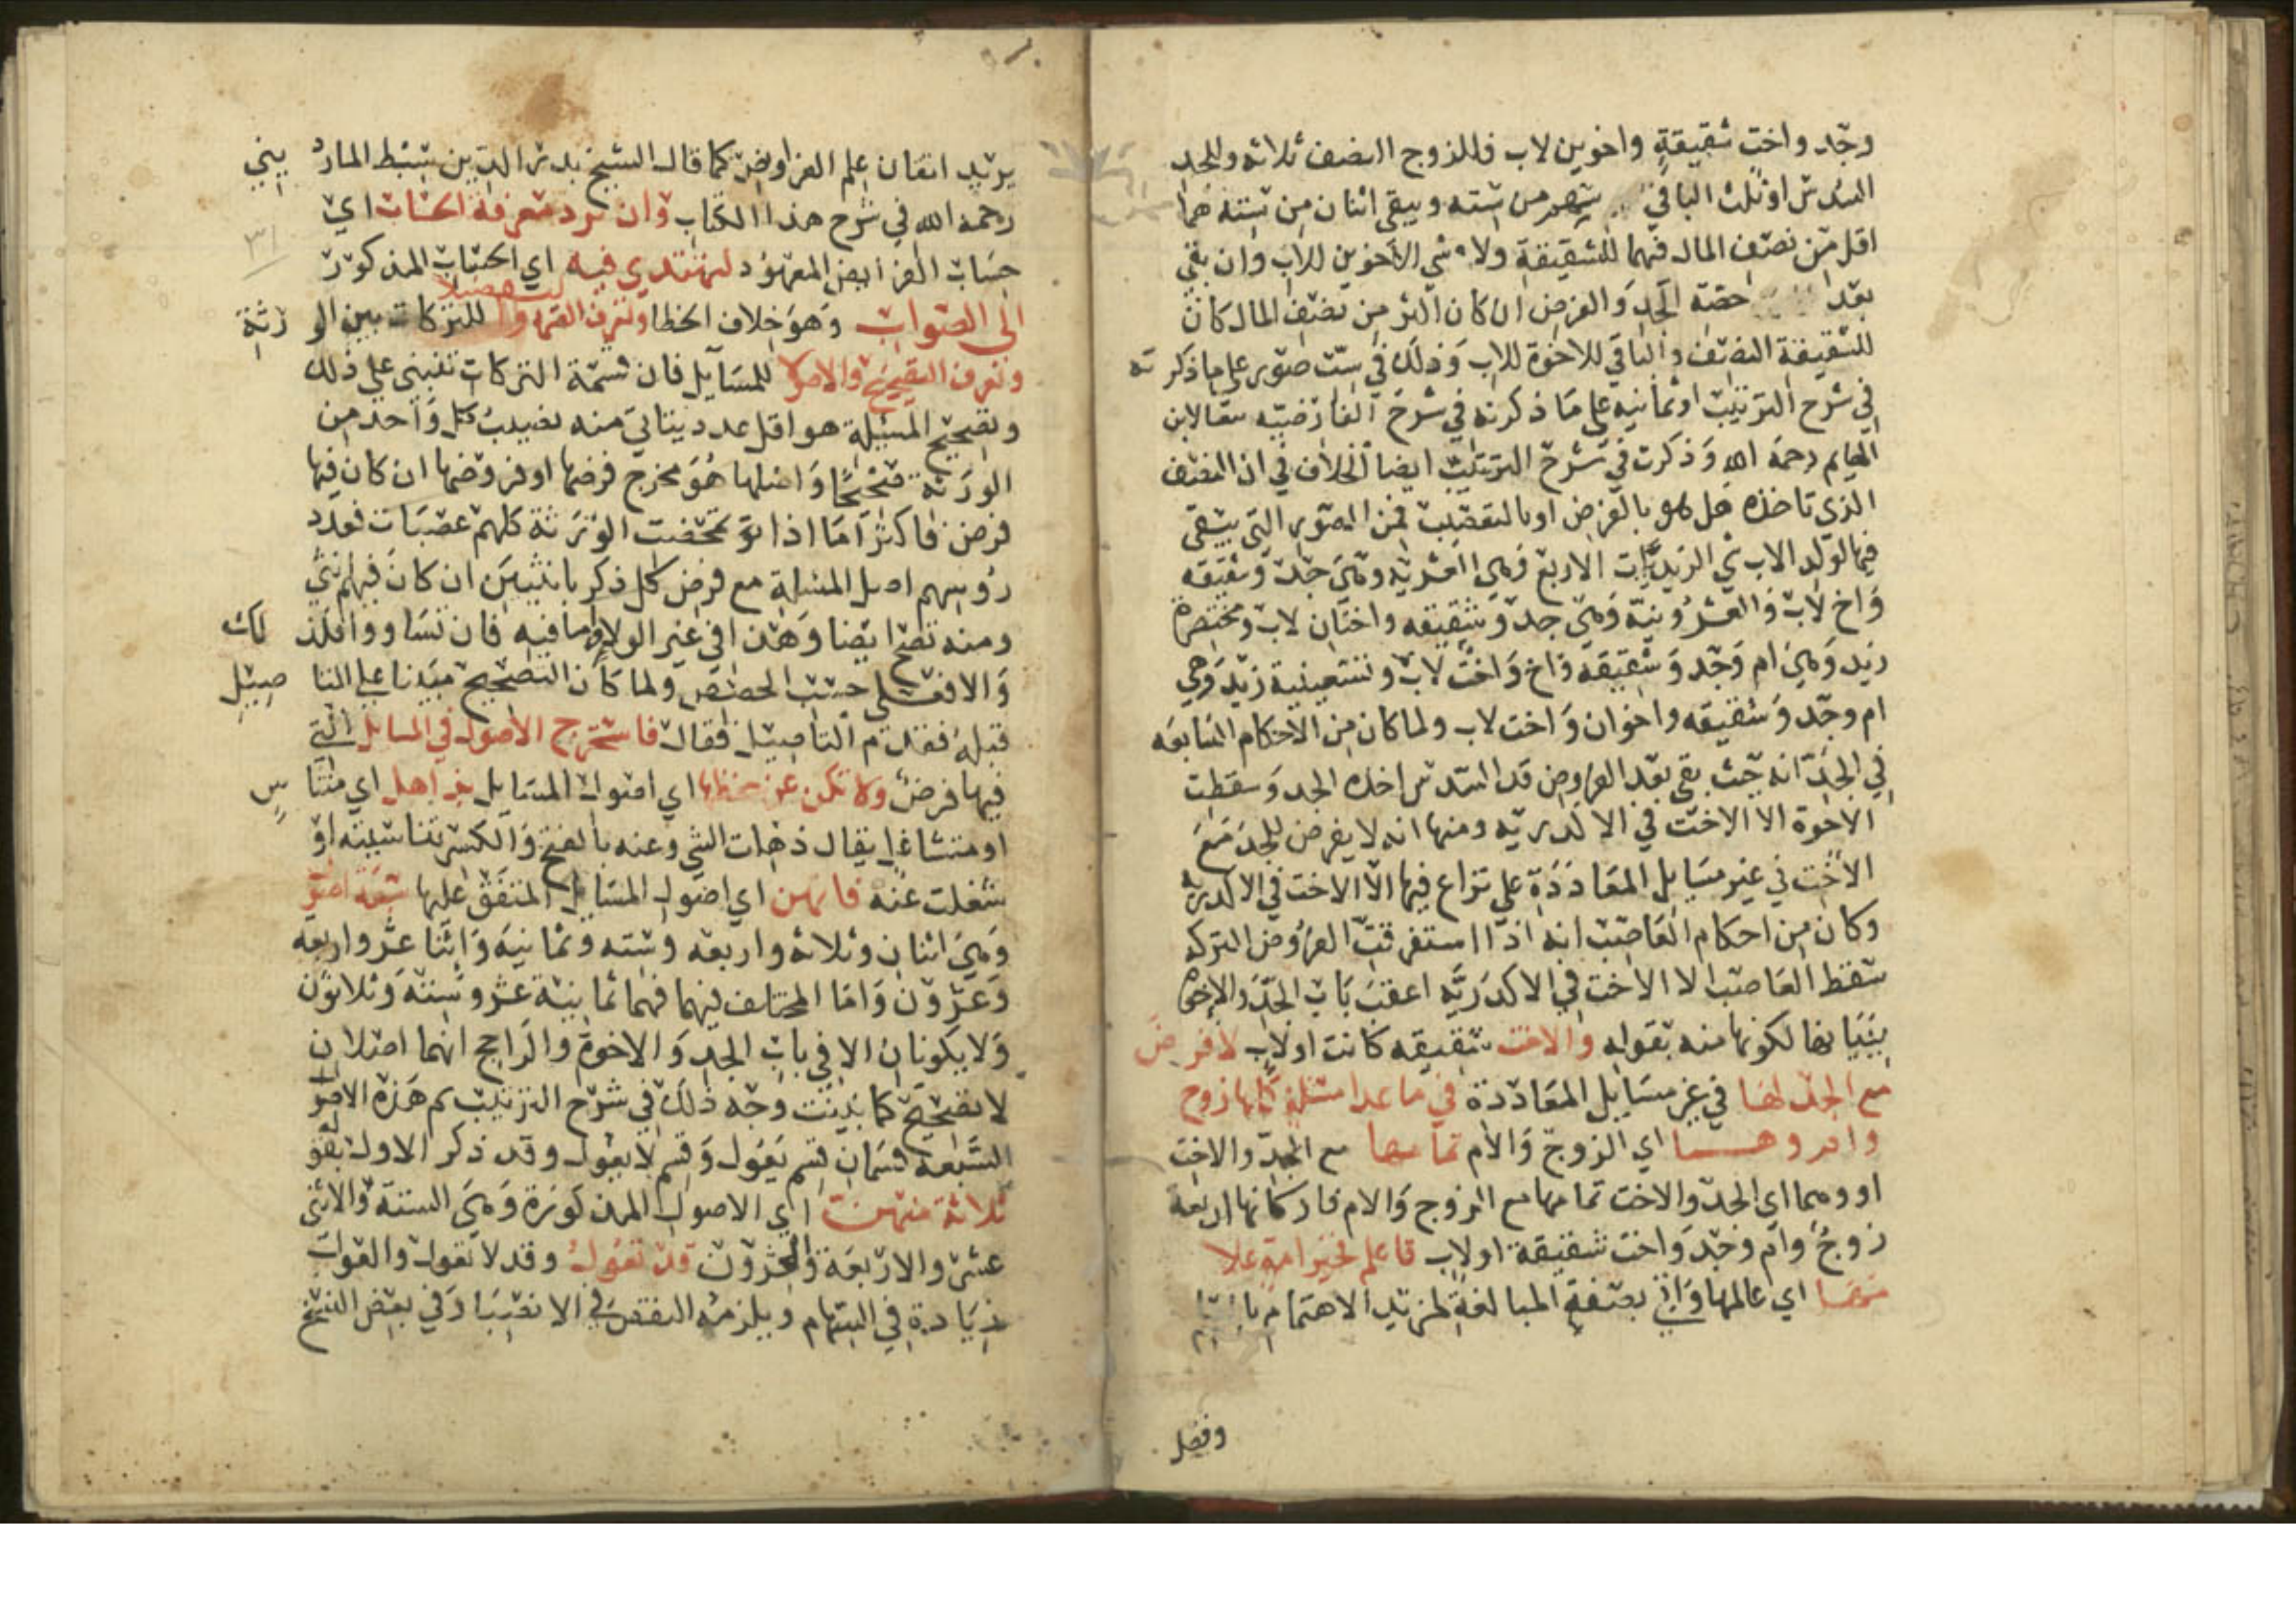 وجد واخت شقيقة واخوين لاب فللزوج النصف ثلاثة وللجد
السدس او ثلث الباقي سهم من ستة ويبقى اثنان من ستة هما
اقل من نصف المال فهما للشقيقة ولا شي للاخوين للاب وان بقي
بعد حصة الجد والفرض ان كان اكثر من نصف المال كان
للشقيقة النصف والباقي للاخوة للاب وذلك في ست صور على ما ذكرته
في شرح الترتيب او ثمانية على ما ذكرته في شرح الفارضيه تبعا لابن
الهايم رحمه الله وذكرت في شرح الترتيب ايضا الخلاف في ان النصف
الذي تاخذه هل هو بالفرض او بالتعصيب فمن الصور التي يبقى
فيها لولد الاب شي الزيديات الاربع وهي العشريه وهي جد وشقيقه
واخ لاب والعشرونيه وهي جد وشقيقه واختان لاب ومختصرة
زيد وهي ام وجد وشقيقه واخ واخت لاب وتسعينية زيد وهي
ام وجد وشقيقه واخوان واخت لاب ولما كان من الاحكام السابقه
في الجد انه حيث بقي بعد الفروض قدر السدس اخذه الجد وسقطت
الاخوة الا الاخت في الاكدريه ومنها انه لا يفرض للجد مع
الاخت في غير مسايل المعاددة على نزاع فيها الا الاخت في الاكدريه
وكان من احكام العاصب انه اذا استغرقت الفروض التركه
سقط العاصب الا الاخت في الاكدريه اعقب باب الجد والاخوة
ببيانها لكونها منه بقوله والاخت شقيقه كانت او لاب لا فرض
مع الجد لها في غير مسايل المعاددة في ما عدا مسئلة كملها زوج
وام وهما اي الزوج والام تمامها مع الجد والاخت
او وهما اي الجد والاخت تمامها مع الزوج والام فاركانها اربعة
زوج وام وجد واخت شقيقة او لاب فاعلم فخير امة علا
مها اي عالمها واتى بصفة المبالغة لمزيد الاهتمام
وفضل
يريد اتقان علم الفرايض كما قال الشيخ بدر الدين سبط الماردينى
رحمه الله في شرح هذا الكتاب وان ترد معرفة الحساب اي
٣١
حساب الفرايض المعهود لتهتدي فيه اي الحساب المذكور
الى الصواب وهو خلاف الخطا وتعرف القسمه والتفصيلا للتركات بين الورثة
وتعرف التصحيح والاصولا للمسايل فان قسمة التركات تنبني على ذلك
وتصحيح المسئلة هو اقل عدد يتاتى منه نصيب كل واحد من
الورثة صحيحا واصلها هو مخرج فرضها او فروضها ان كان فيها
فرض فاكثر اما اذا تمحضت الورثة كلهم عصبات فعدد
رؤسهم اصل المسئلة مع فرض كل ذكر بانثيين ان كان فيهم انثى
ومنه تصح ايضا وهذا في غير الولا واما فيه فان تساووا فكذلك
والا فعلى حسب الحصص ولما كان التصحيح مبنيا على التاصيل
قبله فقدم التاصيل فقال فاستخرج الاصول في المسايل التي
فيها فرض ولا تكن عن حفظها اي اصول المسايل بذاهل اي متناس
او متشاغل يقال ذهلت الشي وعنه بالفتح والكسر تناسيته او
شغلت عنه فانهن اي اصول المسايل المتفق عليها سبعة اصول
وهي اثنان وثلاثه واربعه وسته وثمانيه واثنا عشر واربعه
وعشرون واما المختلف فيهما فهما ثمانية عشر وستة وثلاثون
ولا يكونان الا في باب الجد والاخوة والراجح انهما اصلان
لا تصحيح كما بينت وجه ذلك في شرح الترتيب ثم هذه الاصول
السبعة قسمان قسم يعول وقسم لا يعول وقد ذكر الاول بقوله
ثلاثة منهن اي الاصول المذكورة وهي الستة والاثني
عشر والاربعة والعشرون قد تعول وقد لا تعول والعول
زيادة في السهام ويلزمه النقص في الانصبا وفي بعض النسخ